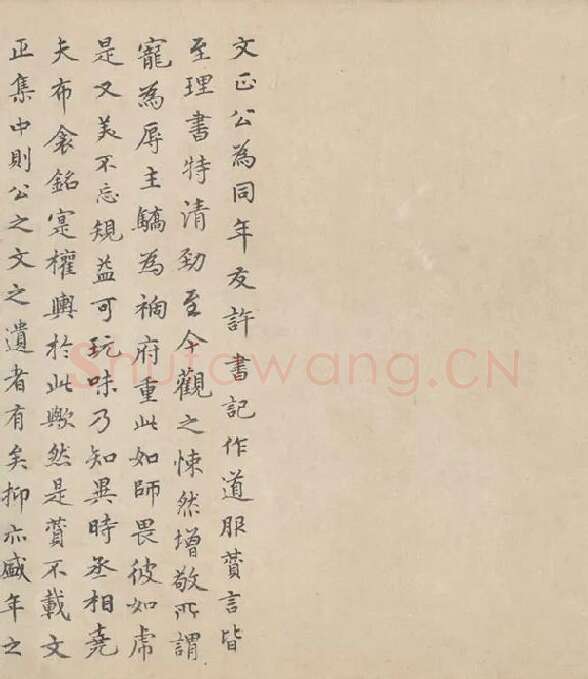 文正公為同年友許書記作道服賛言皆
至理書特清勁至今觀之悚然增敬所謂
寵為辱主驕為禍府重此如師畏彼如虎
是又美不忘規益可玩味乃知異時丞相堯
夫布衾銘寔權輿於此歟然是賛不載文
正集中則公之文之遺者有矣抑亦盛年之
Shufawang.CN